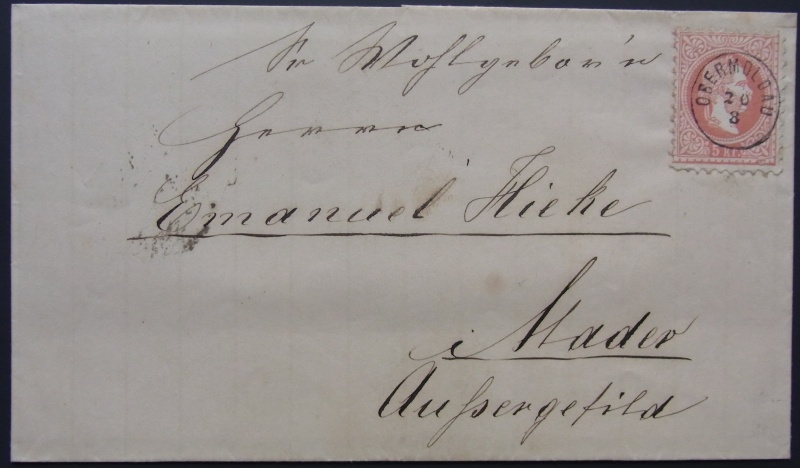 Sr Wohlgebor'n
Herrn
Emanuel Hieke
i Mader
Außergefild
OBERMOLDAU
20
8
5 Kr.